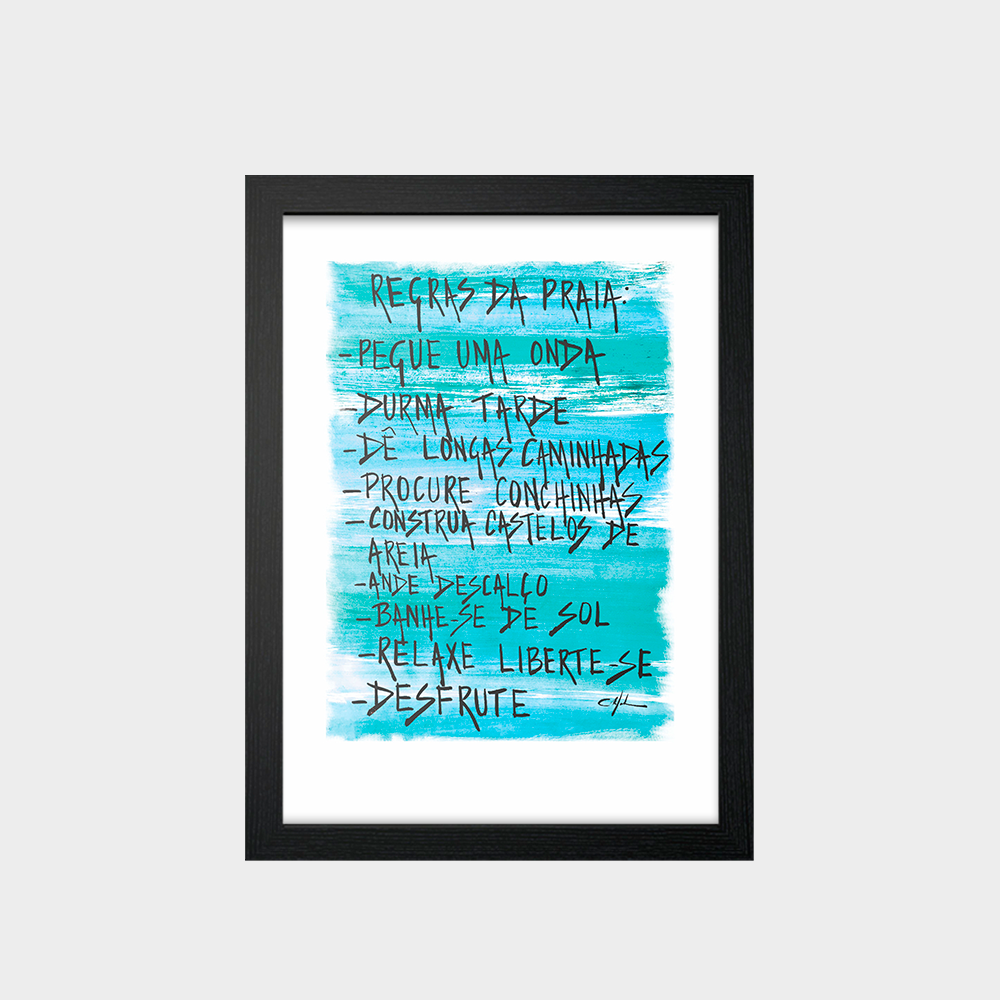 REGRAS DA PRAIA:
-PEGUE UMA ONDA
-DURMA TARDE
-DÊ LONGAS CAMINHADAS
-PROCURE CONCHINHAS
-CONSTRUA CASTELOS DE
AREIA
-ANDE DESCALÇO
-BANHE-SE DE SOL
-RELAXE LIBERTE-SE
-DESFRUTE